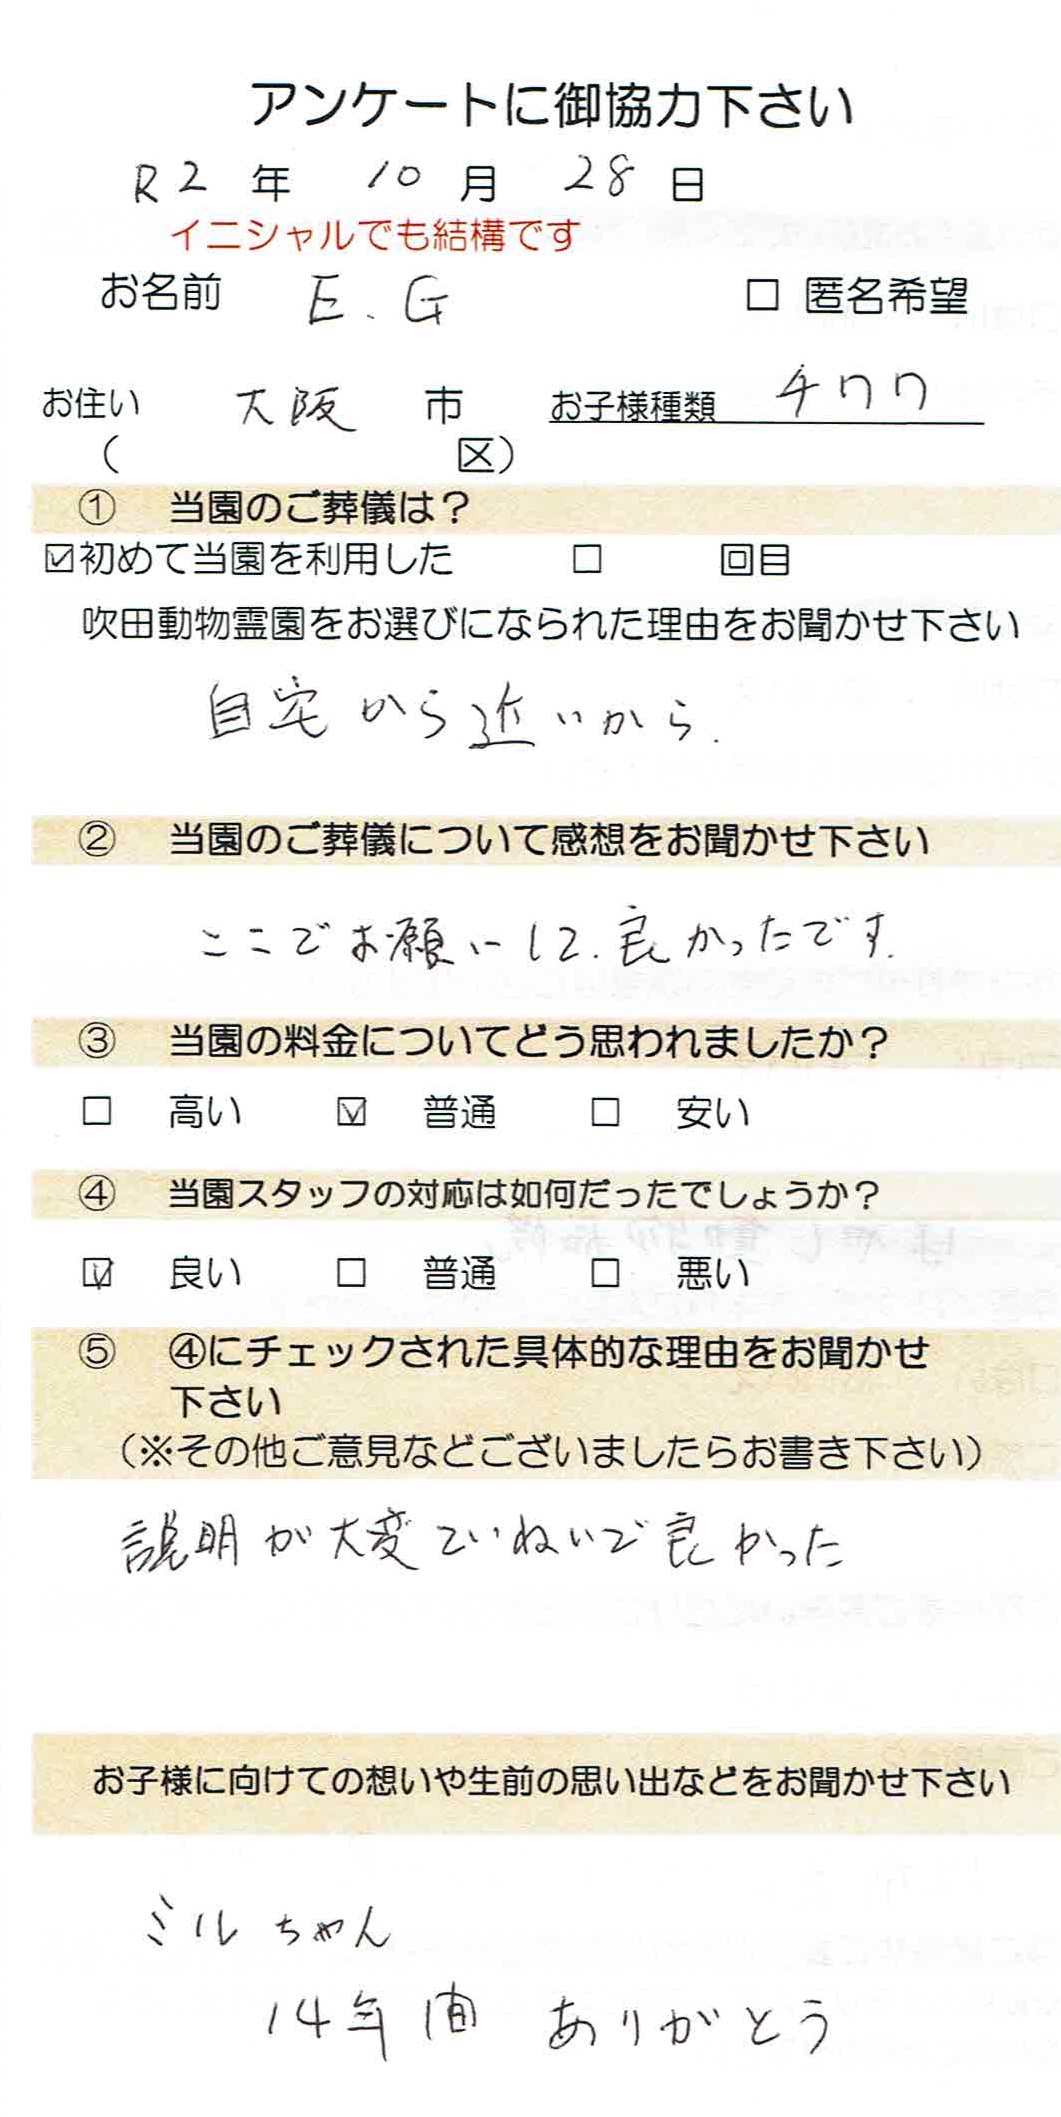 アンケートに御協力下さい
R2 年 10 月 28 日
イニシャルでも結構です
お名前 E.G □ 匿名希望
お住い 大阪 市 お子様種類 チワワ
( 区)
① 当園のご葬儀は？
☑初めて当園を利用した □ 回目
吹田動物霊園をお選びになられた理由をお聞かせ下さい
自宅から近いから.
② 当園のご葬儀について感想をお聞かせ下さい
ここでお願いして.良かったです.
③ 当園の料金についてどう思われましたか？
□ 高い ☑ 普通 □ 安い
④ 当園スタッフの対応は如何だったでしょうか？
☑ 良い □ 普通 □ 悪い
⑤ ④にチェックされた具体的な理由をお聞かせ
下さい
（※その他ご意見などございましたらお書き下さい）
説明が大変ていねいで良かった
お子様に向けての想いや生前の思い出などをお聞かせ下さい
ミルちゃん
14年間 ありがとう